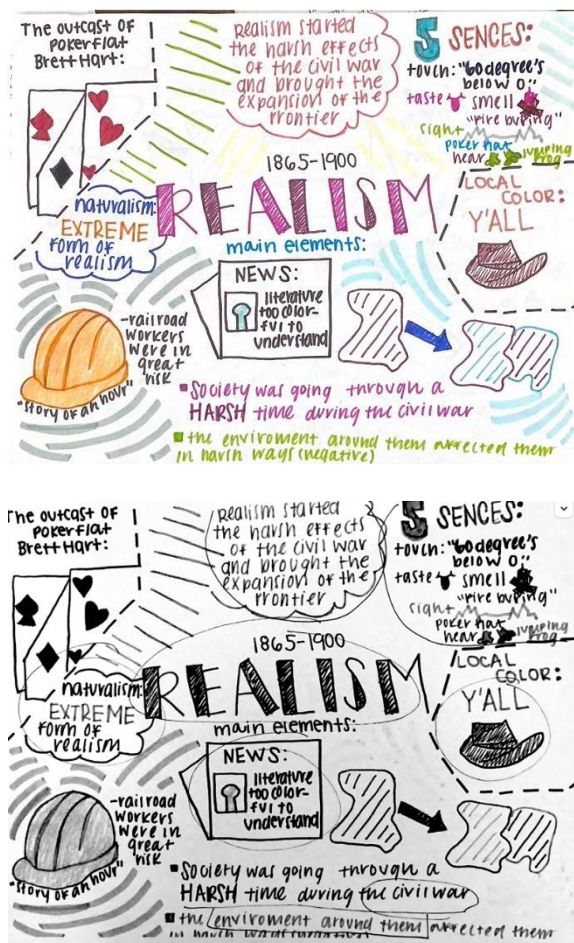 The outcast of
Pokerflat
Brett Hart:
Realism started
the harsh effects
of the civil war
and brought the
expansion of the
frontier
5 SENCES:
touch: "60 degree's
below 0"
taste smell
"fire buring"
sight
poker hat
hear jumping
frog
1865-1900
REALISM
main elements:
naturalism:
EXTREME
form of
realism
LOCAL
COLOR:
Y'ALL
NEWS:
literature
too color-
ful to
understand
-railroad
workers
were in
great
risk
"story of an hour"
Society was going through a
HARSH time during the civil war
the enviroment around them affected them
in harsh ways (negative)
The outcast of
Pokerflat
Brett Hart:
Realism started
the harsh effects
of the civil war
and brought the
expansion of the
frontier
5 SENCES:
touch: "60 degree's
below 0"
taste smell
"fire buring"
sight
poker hat
hear jumping
frog
1865-1900
REALISM
main elements:
naturalism:
EXTREME
form of
realism
LOCAL
COLOR:
Y'ALL
NEWS:
literature
too color-
ful to
understand
-railroad
workers
were in
great
risk
"story of an hour"
Society was going through a
HARSH time during the civil war
the enviroment around them affected them